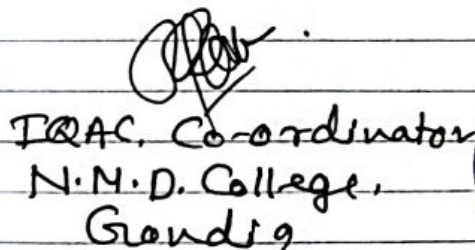 IQAC, Co-ordinator
N.M.D. College,
Gondia